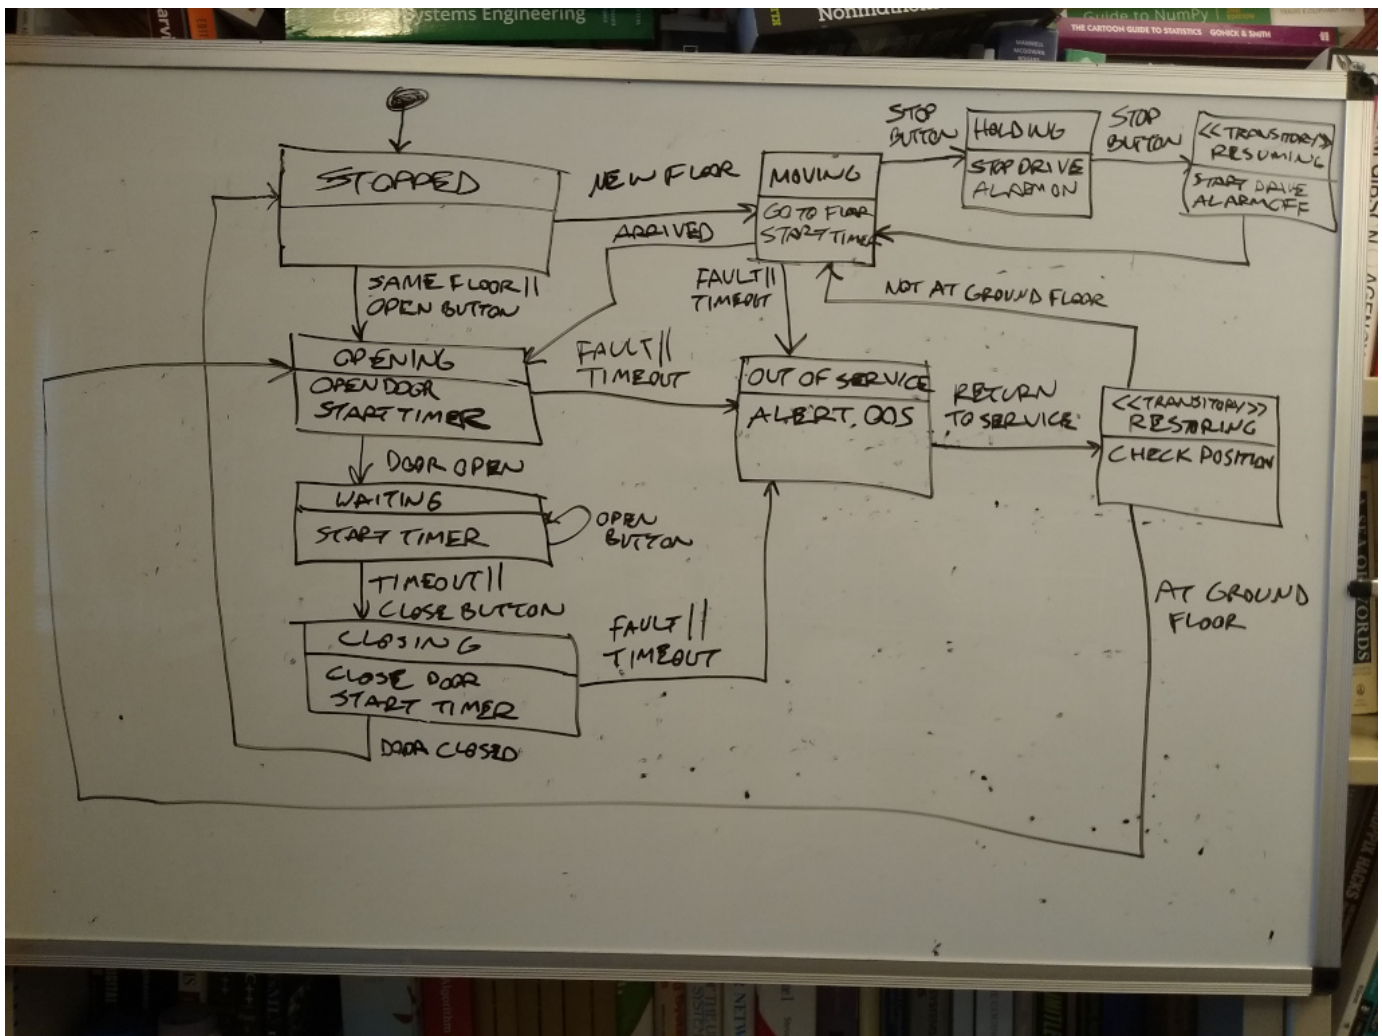 Systems Engineering
Guide to NumPy
THE CARTOON GUIDE TO STATISTICS GONICK & SMITH
STOPPED
NEW FLOOR
MOVING
GO TO FLOOR
START TIMER
STOP
BUTTON
HOLDING
STOP DRIVE
ALARM ON
STOP
BUTTON
<<TRANSITORY>>
RESUMING
START DRIVE
ALARM OFF
ARRIVED
SAME FLOOR ||
OPEN BUTTON
FAULT ||
TIMEOUT
NOT AT GROUND FLOOR
OPENING
OPEN DOOR
START TIMER
FAULT ||
TIMEOUT
OUT OF SERVICE
ALERT OOS
RETURN
TO SERVICE
<<TRANSITORY>>
RESTORING
CHECK POSITION
DOOR OPEN
WAITING
START TIMER
OPEN
BUTTON
TIMEOUT ||
CLOSE BUTTON
CLOSING
CLOSE DOOR
START TIMER
FAULT ||
TIMEOUT
AT GROUND
FLOOR
DOOR CLOSED
Algorithm